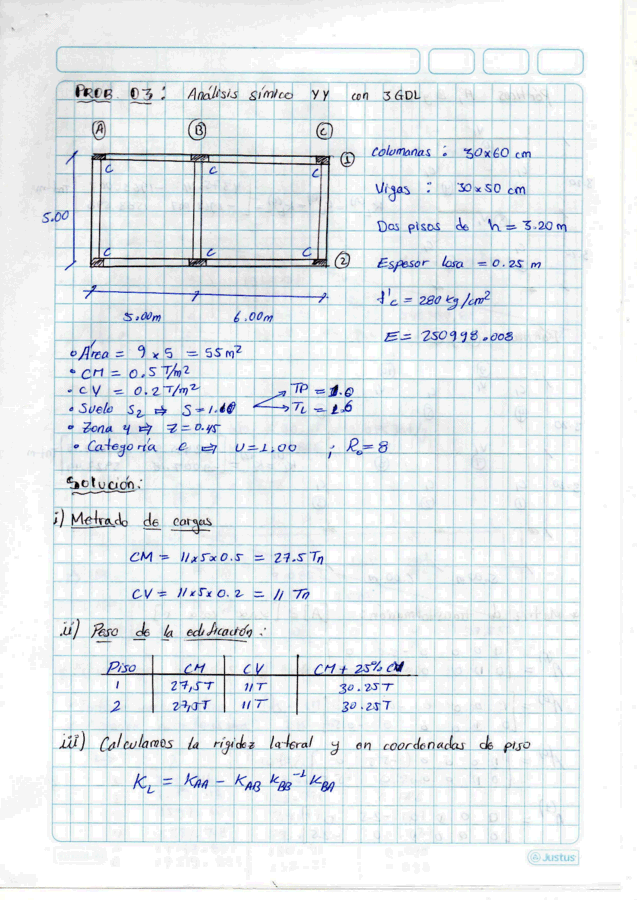 PROB 03: Análisis símico YY con 3GDL
A B C
C C C 1
5.00
C C C 2
5.00m 6.00m
Colomanas: 30x60 cm
Vigas: 30x50 cm
Dos pisos de h = 3.20m
Espesor losa = 0.25 m
f'c = 280 kg/cm²
E = 250998.008
• Área = 9 x 5 = 55m²
• CM = 0.5 T/m²
• CV = 0.2 T/m²
• Suelo S2 ⇒ S=1.10 → TP = 1.0
→ TL = 1.6
• Zona 4 ⇒ Z=0.45
• Categoría C ⇒ U=1.00 ; R₀=8
Solución:
i) Metrado de cargas
CM = 11x5x0.5 = 27.5 Tn
CV = 11x5x0.2 = 11 Tn
ii) Peso de la edificación:
Piso CM CV CM + 25% CV
1 27,5T 11T 30.25T
2 27,5T 11T 30.25T
iii) Calculamos la rigidez lateral y en coordenadas de piso
K_L = K_AA - K_AB K_BB⁻¹ K_BA
Justus